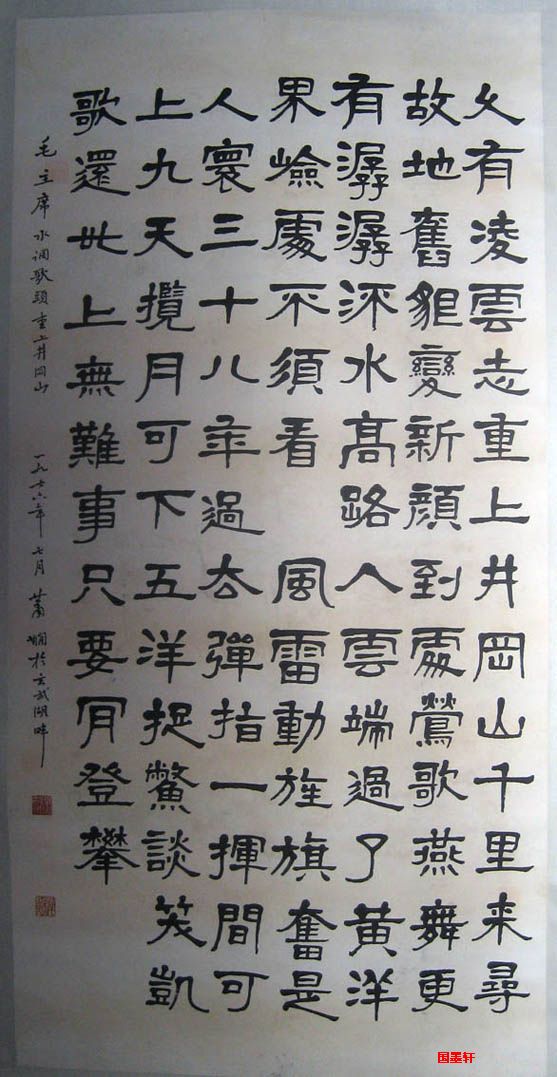 久有凌雲志重上井岡山千里来尋
故地舊貌變新顔到處鶯歌燕舞更
有潺潺流水高路入雲端過了黃洋
果嶮處不須看 風雷動旌旗奮是
人寰三十八年過去彈指一揮間可
上九天攬月可下五洋捉鱉談笑凱
歌還世上無難事只要肯登攀
毛主席水调歌頭重上井岡山 一九七六年七月 蕭嫻於玄武湖畔
国墨轩